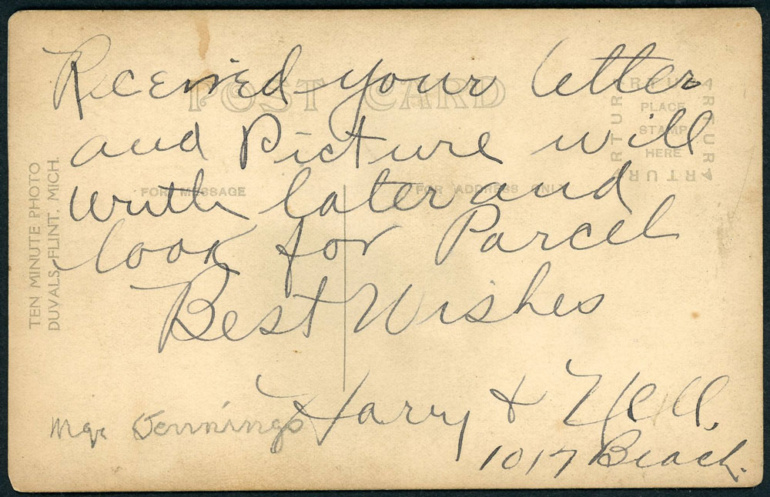 Received your letter
and Picture will
write later and
look for Parcel
Best Wishes
Harry & Nell,
1017 Beach.
Mgr Jennings
POST CARD
FOR MESSAGE
FOR ADDRESS ONLY
ARTURA
ARTURA
ARTURA
ARTURA
PLACE
STAMP
HERE
TEN MINUTE PHOTO
DUVALS-FLINT, MICH.